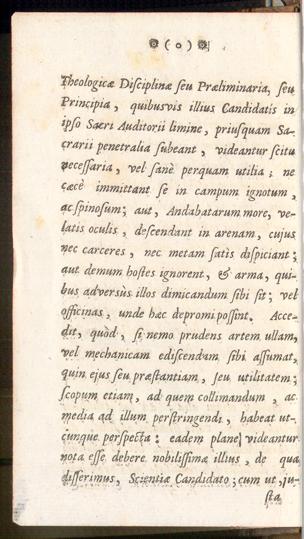 (o)
Theologicæ Disciplinæ seu Præliminaria, seu
Principia, quibusvis illius Candidatis in
ipso Sacri Auditorii limine, priusquam Sa-
crarii penetralia subeant, videantur scitu
necessaria, vel sanè perquam utilia; ne
cæcè immittant se in campum ignotum,
ac spinosum; aut, Andabatarum more, ve-
latis oculis, descendant in arenam, cujus
nec carceres, nec metam satis dispiciant;
aut demum hostes ignorent, & arma, qui-
bus adversùs illos dimicandum sibi sit; vel
officinas, unde hæc depromi possint. Acce-
dit, quòd, si nemo prudens artem ullam,
vel mechanicam ediscendam sibi assumat,
quin ejus seu præstantiam, seu utilitatem;
scopum etiam, ad quem collimandum, ac
media ad illum perstringendi, habeat ut-
cunque perspecta: eadem planè videantur
nota esse debere nobilissimæ illius, de qua
disserimus, Scientiæ Candidato; cum ut, ju-
sta